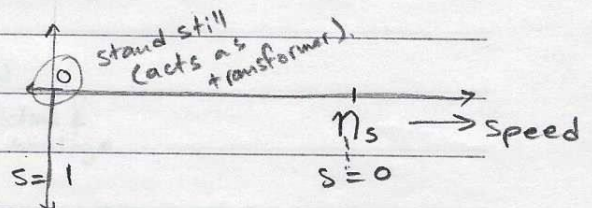 stand still
(acts as
transformer).
0
ns → speed
s = 1
s = 0